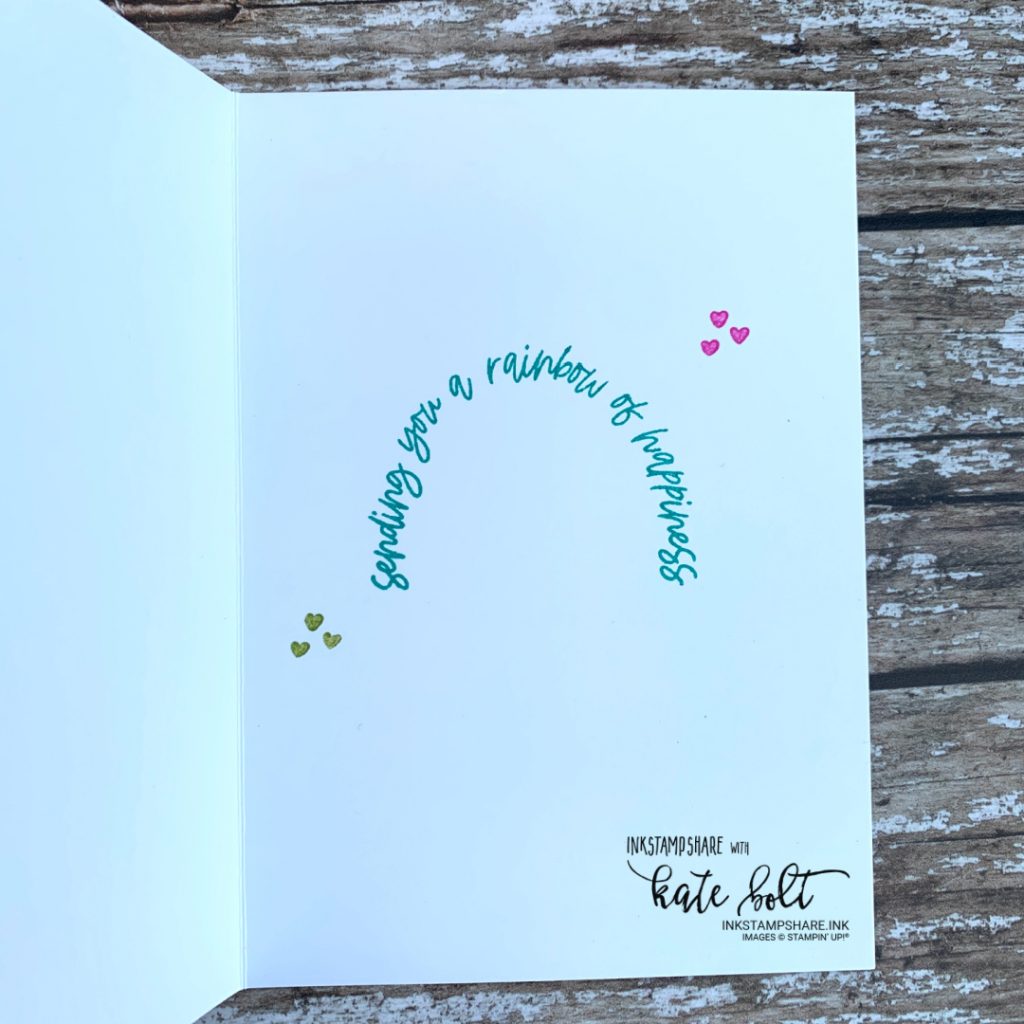 sending you a rainbow of happiness
INKSTAMPSHARE WITH
kate bolt
INKSTAMPSHARE.INK
IMAGES © STAMPIN' UP!®